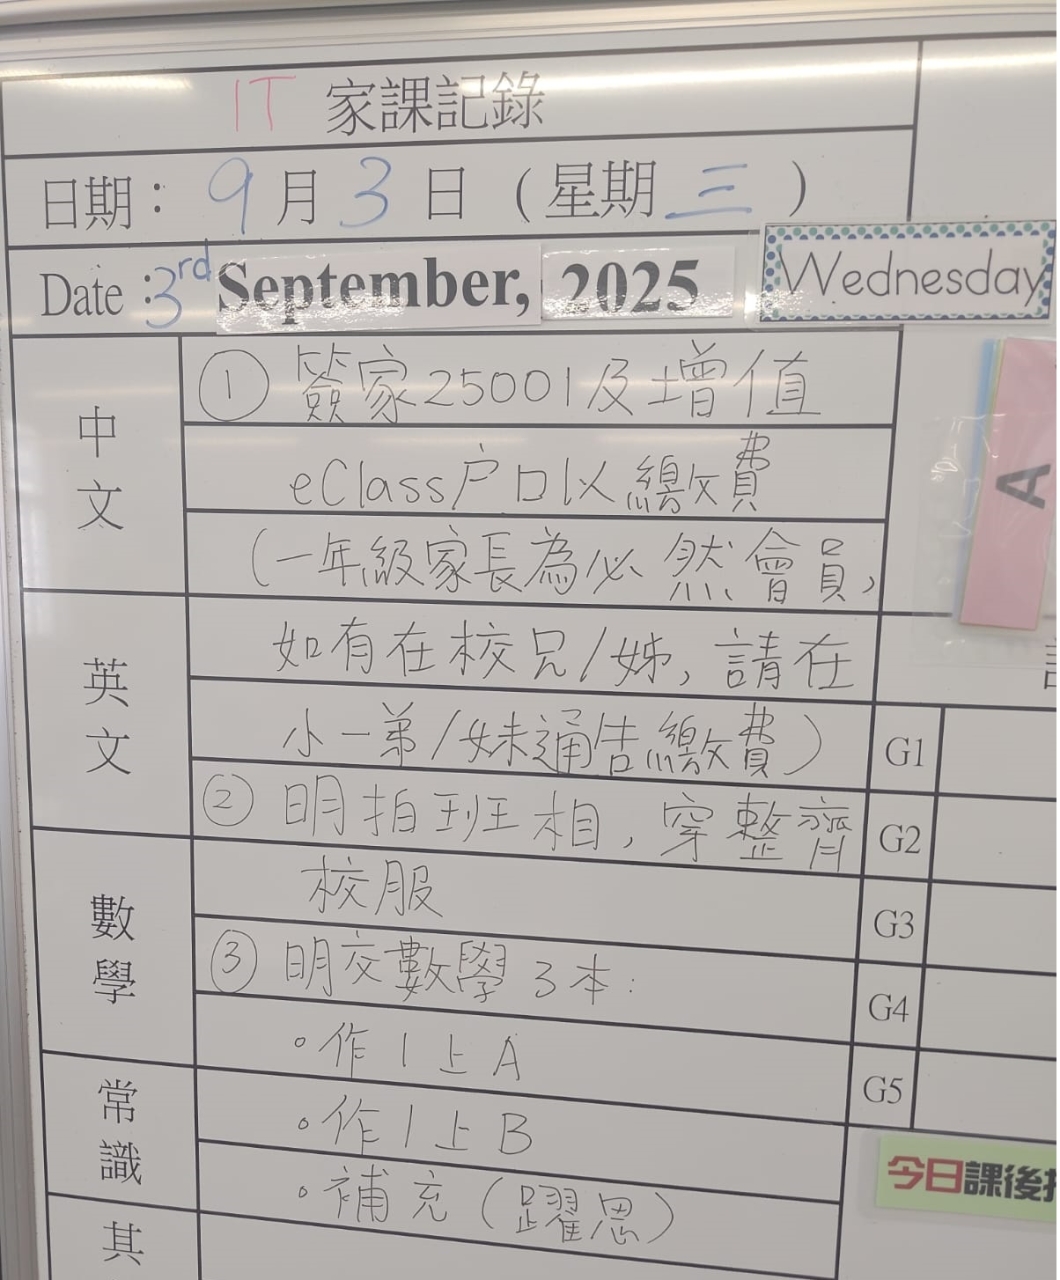 1T 家課記錄
日期： 9 月 3 日 ( 星期 三 )
Date : 3rd September, 2025 Wednesday
中文
① 簽家25001及增值
eClass户口以繳費
(一年級家長為必然會員,
英文
如有在校兄/姊, 請在
小一弟/妹通告繳費)
② 明拍班相, 穿整齊
數學
校服
③ 明交數學3本:
。作1上A
常識
。作1上B
。補充(躍思)
其
A
G1
G2
G3
G4
G5
今日課後